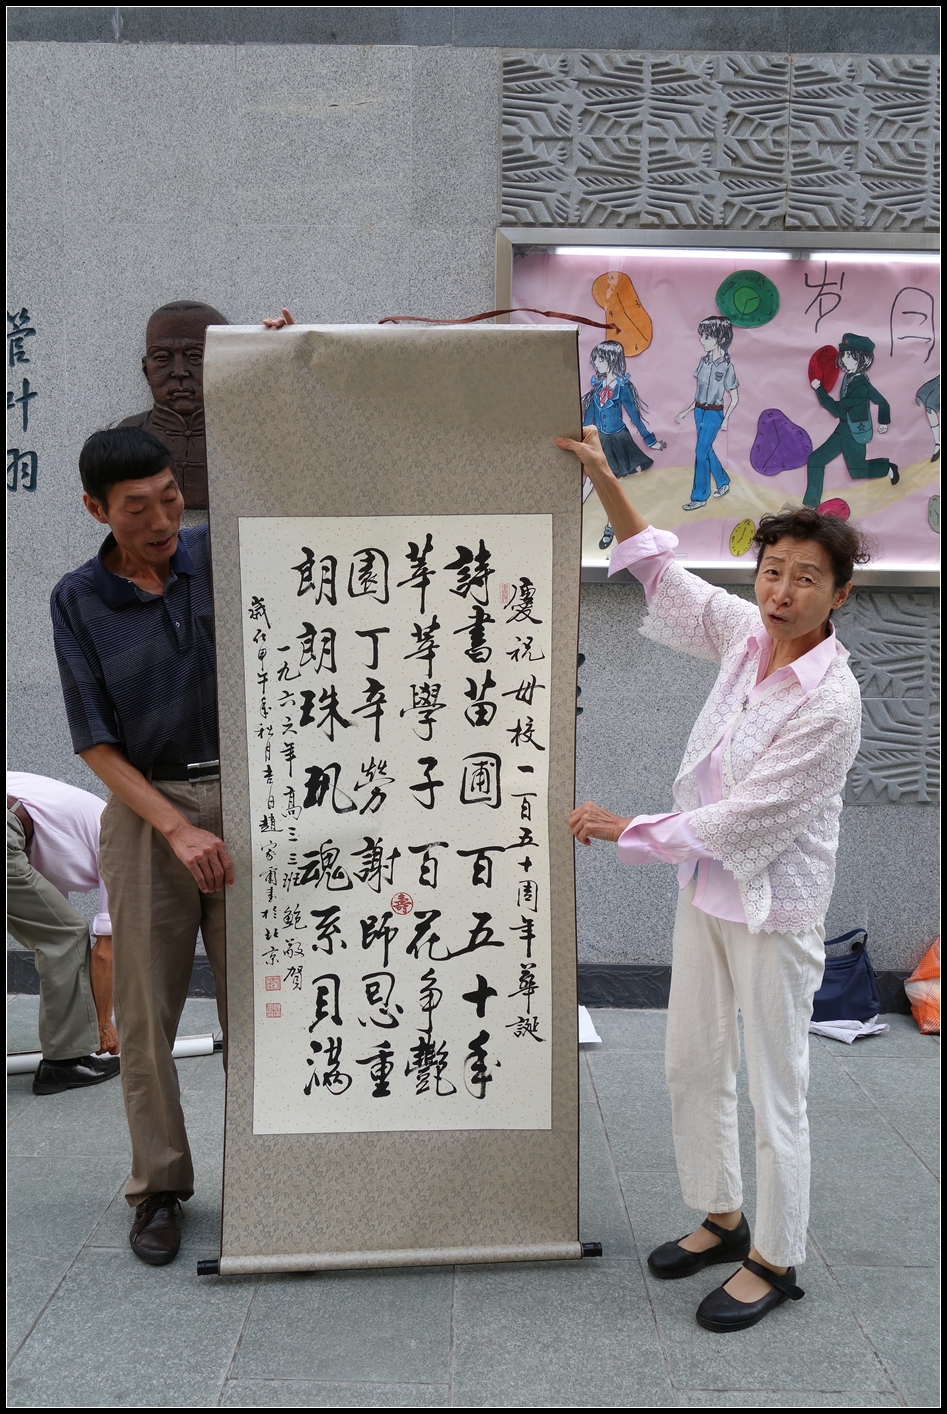 管叶羽
岁月
慶祝母校一百五十周年華誕
詩書苗圃百五十年
莘莘學子百花争艷
園丁辛勞謝師恩重
朗朗珠玑魂系貝滿
一九六六年高三三班鮑敬賀
歲在甲午年秋月吉日趙家書於北京
壽